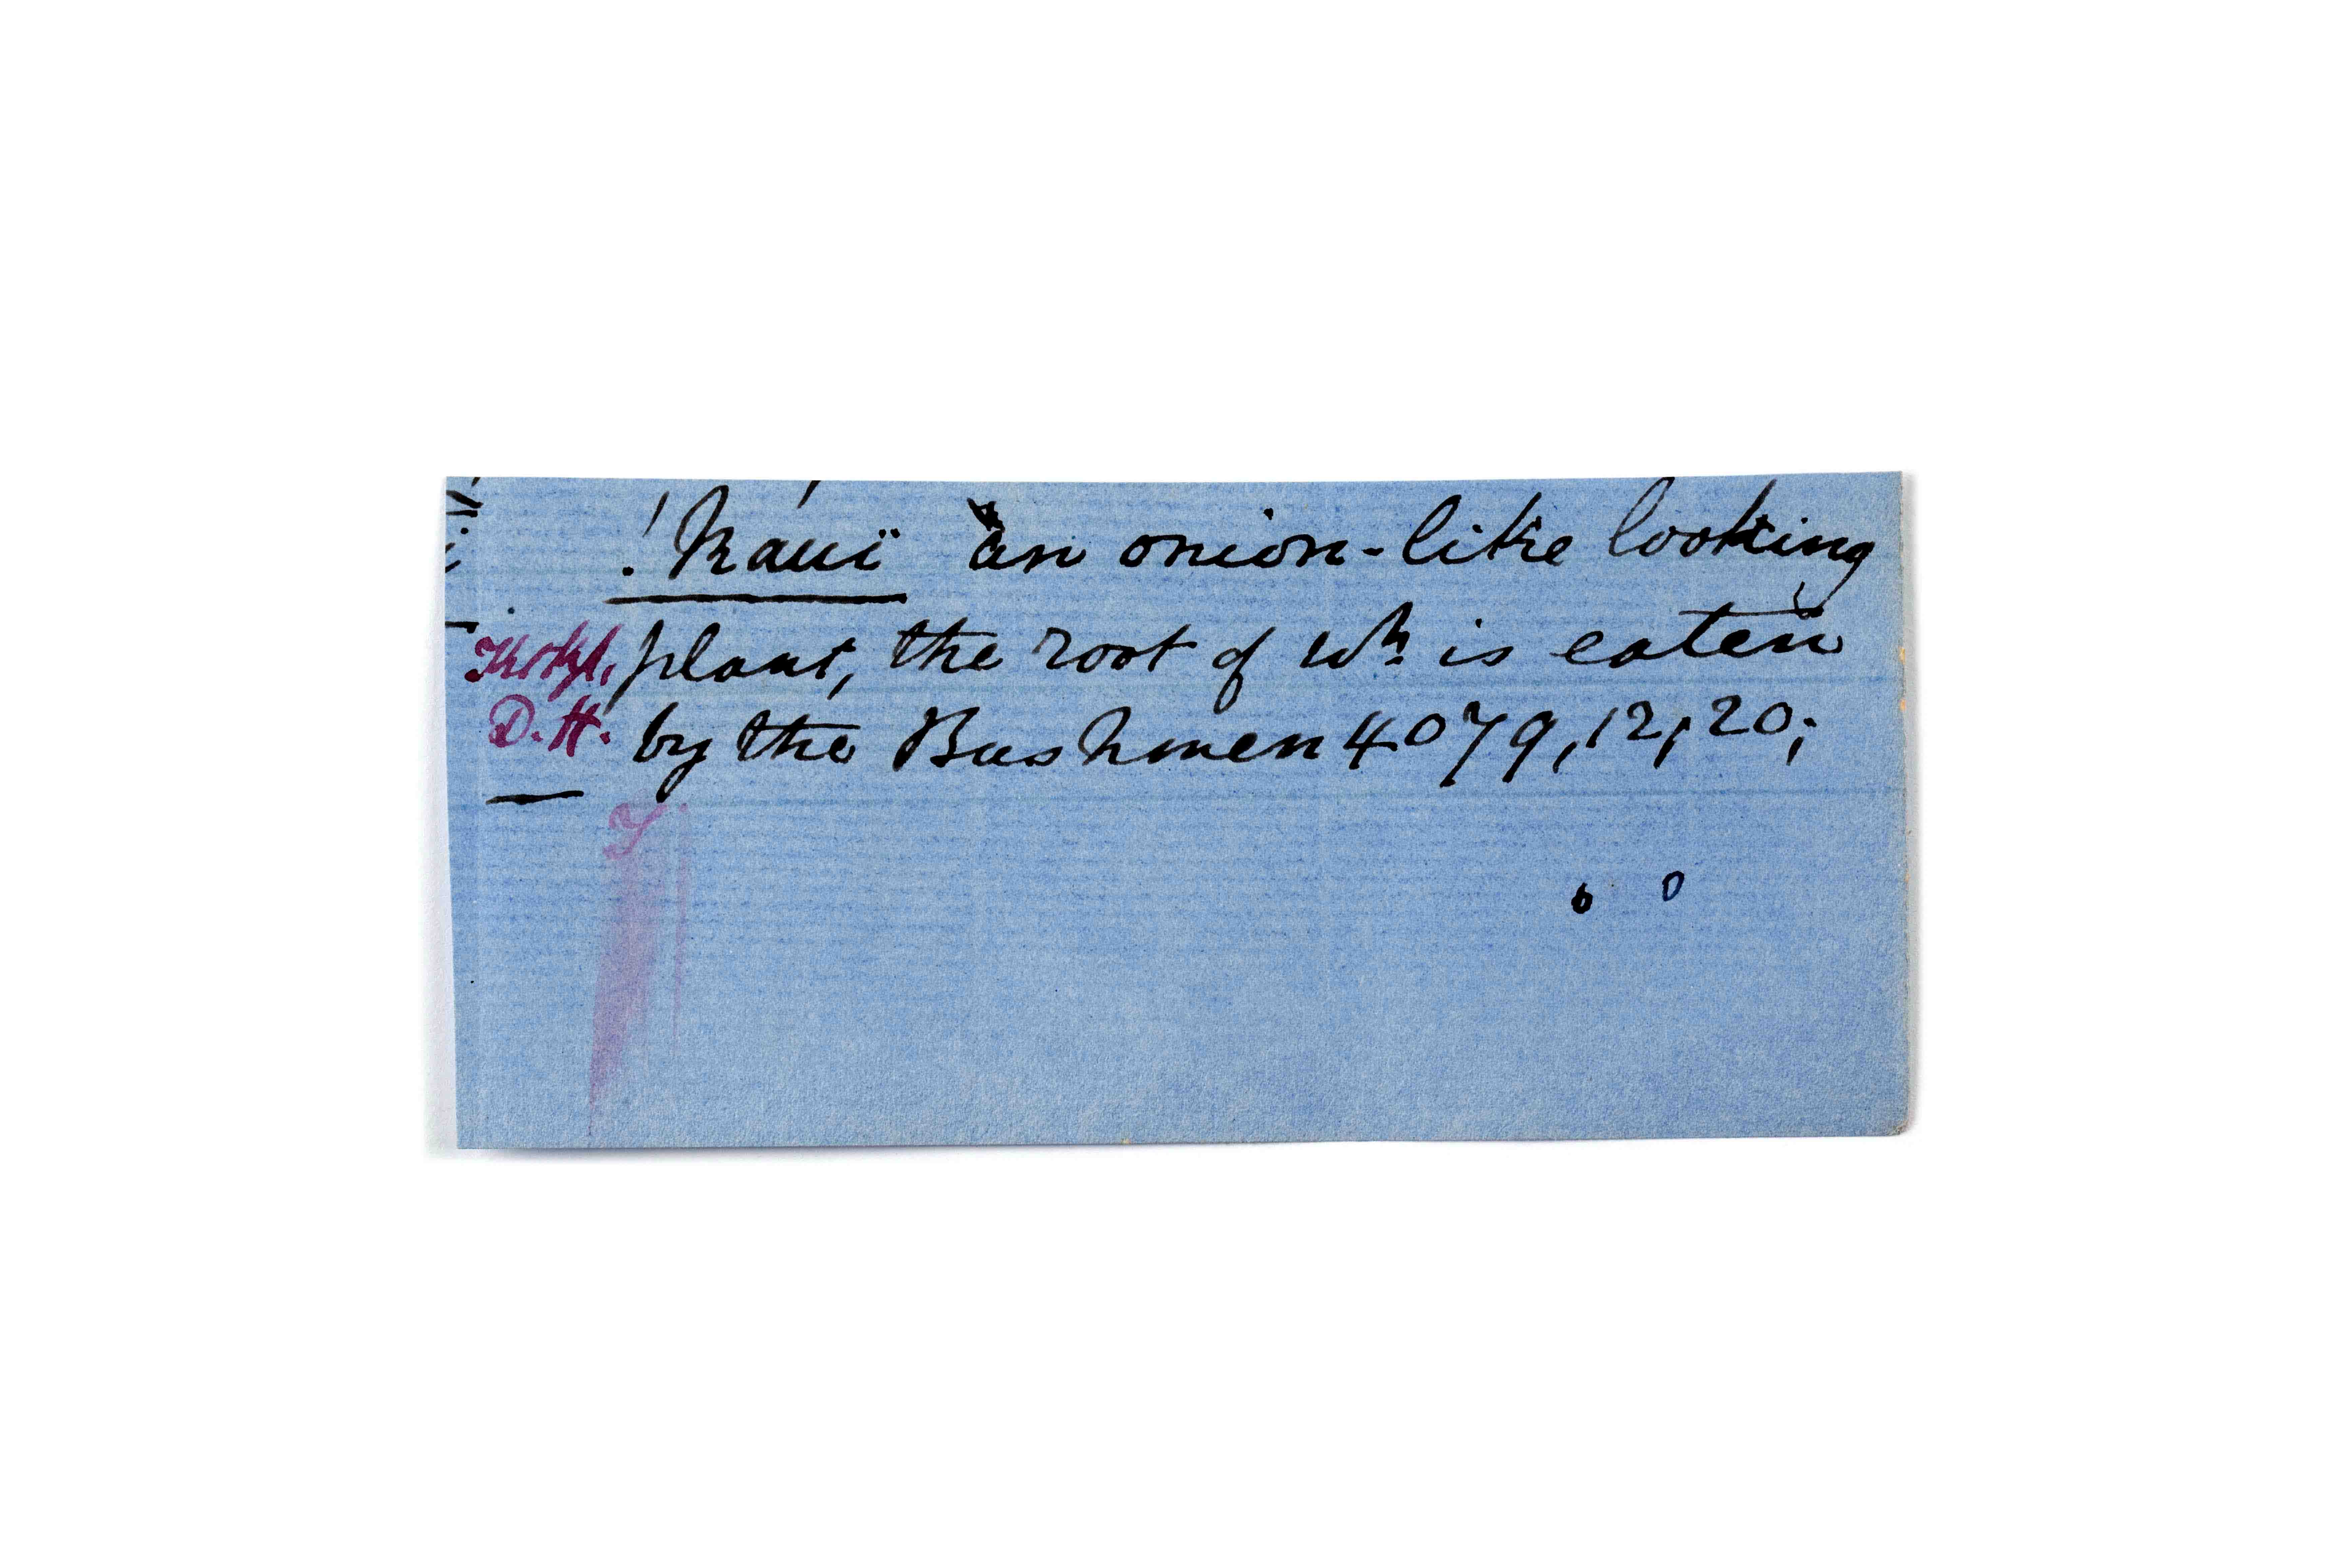 !kauï an onion-like looking
plant, the root of wh. is eaten
D.H. by the Bushmen 4079, 12, 20;